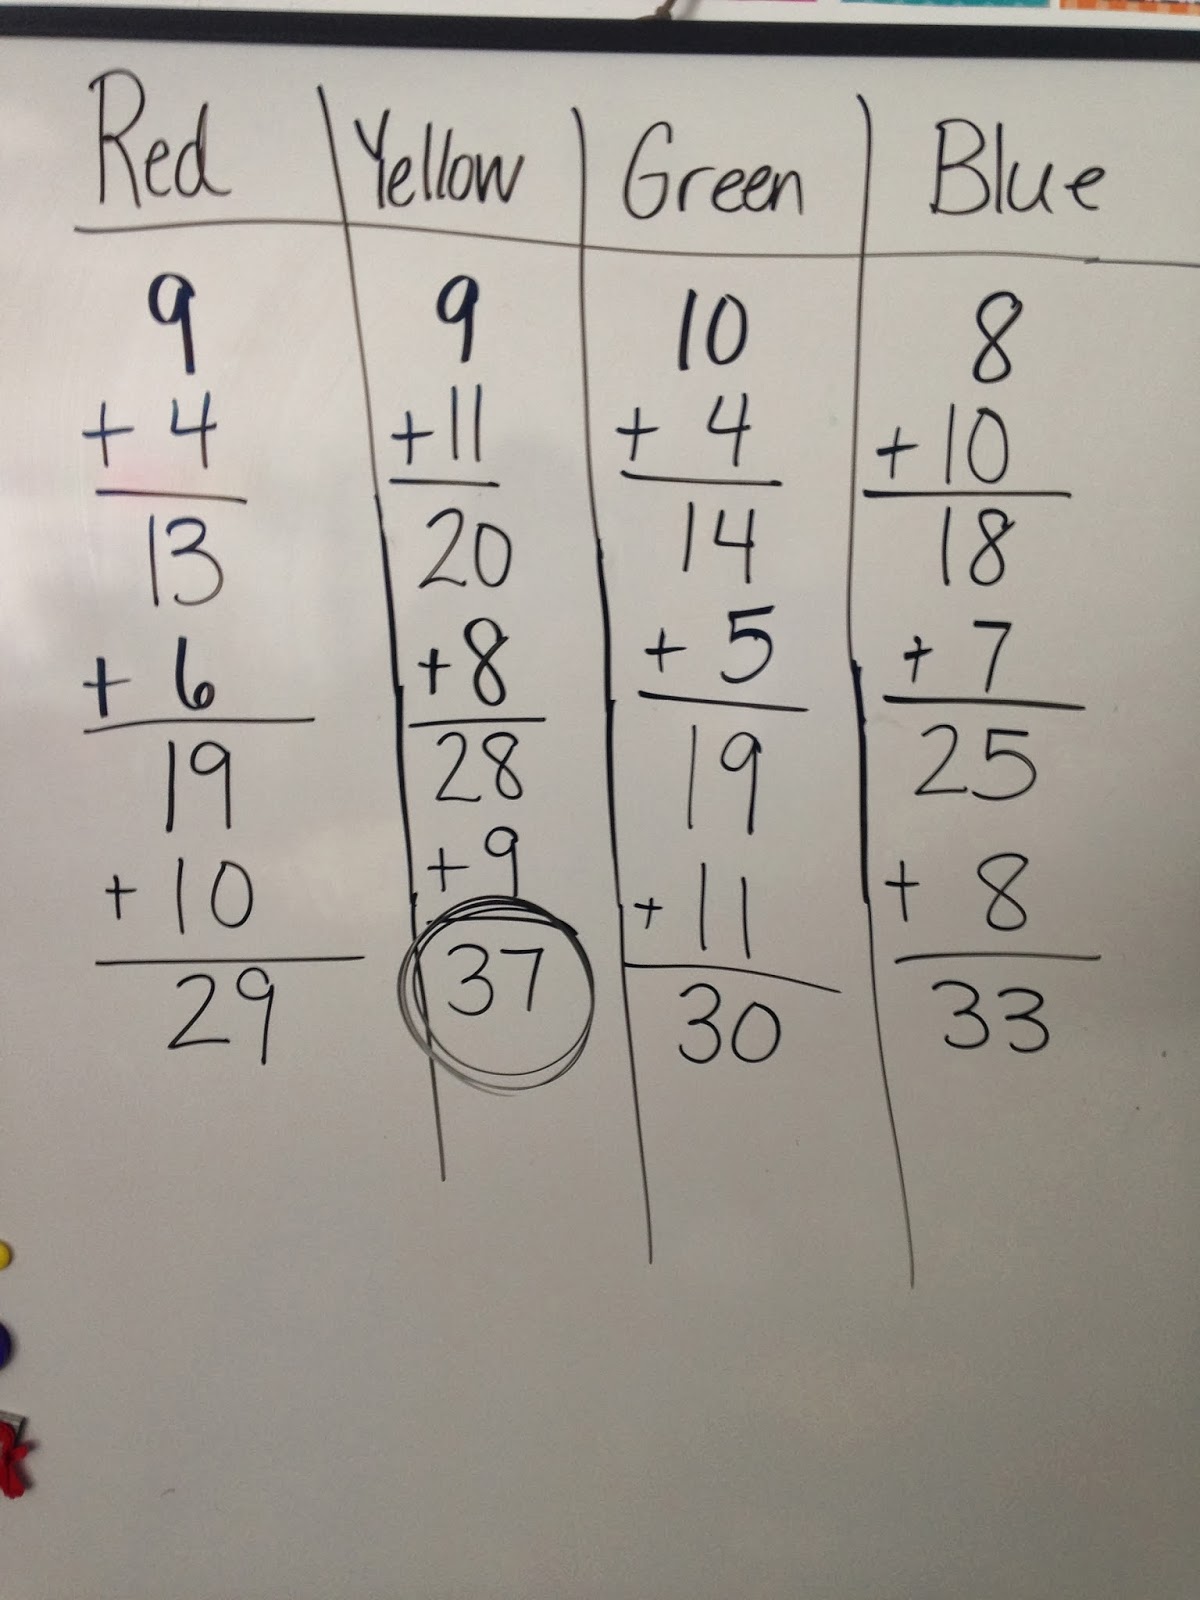 Red Yellow Green Blue
9 9 10 8
+ 4 +11 + 4 +10
13 20 14 18
+ 6 +8 + 5 + 7
19 28 19 25
+ 10 +9 + 11 + 8
29 37 30 33